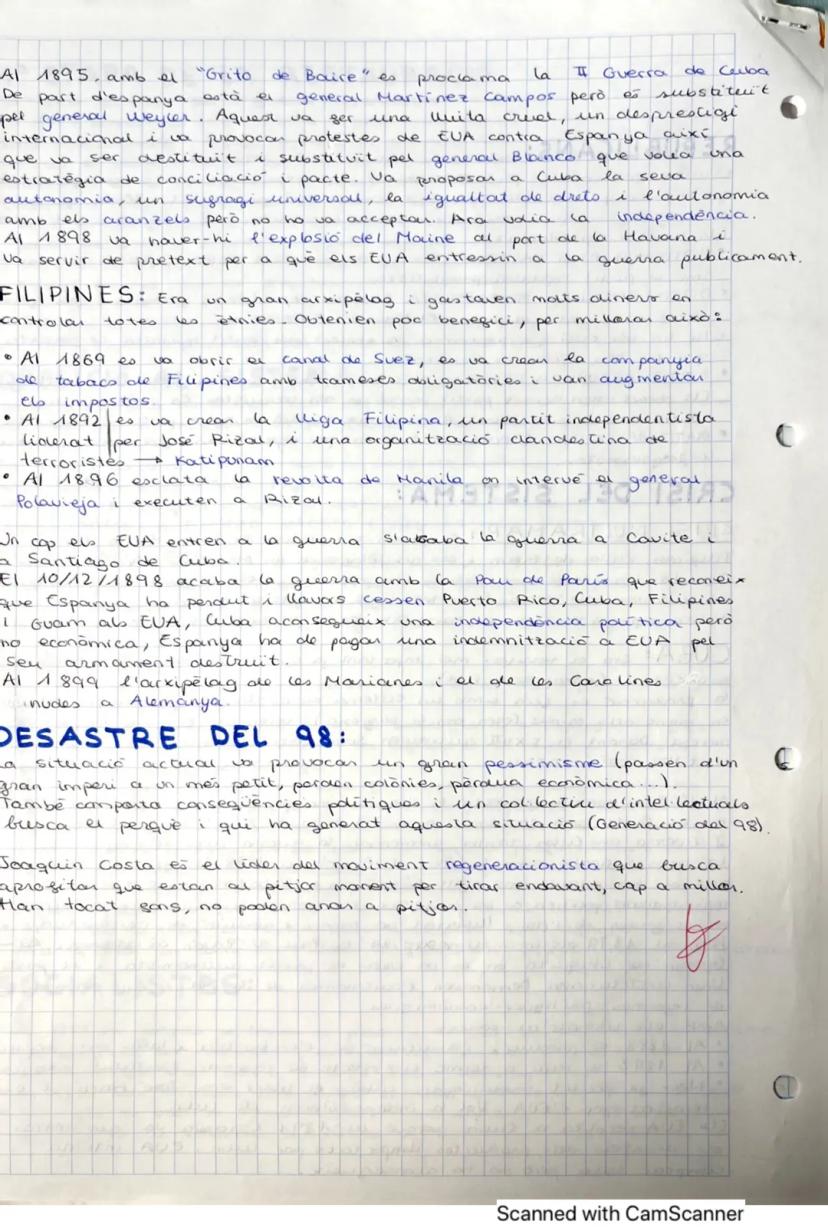 Al 1895, amb el "Grito de Baire" es proclama la II Guerra de Cuba
De part d'espanya està el general Martínez Campos però es substituït
pel general Weyler. Aquest va ser una lluita cruel, un desprestigi
internacional i va provocar protestes de EUA contra Espanya així
que va ser destituït i substituït pel general Blanco que volia una
estratègia de conciliació i pacte. Va proposar a Cuba la seva
autonomia, un sugragi universal, la igualtat de drets i l'autonomia
amb els aranzels però no ho va acceptar. Ara volia la independència.
Al 1898 va haver-hi l'explosió del Maine al port de la Havana i
va servir de pretext per a què els EUA entressin a la guerra publicament.
FILIPINES: Era un gran arxipèlag i gastaven molts diners en
controlar totes les ètnies. Obtenien poc benefici, per millorar això:
• Al 1869 es va obrir el canal de Suez, es va crear la companyia
de tabaco de Filipines amb trameses obligatòries i van augmentar
els impostos
• Al 1892 es va crear la lliga Filipina, un partit independentista
liderat per José Rizal, i una organització clandestina de
terroristes → Katipunam
• Al 1896 esclata la revolta de Manila on intervé el general
Polavieja i executen a Rizal.
Un cop els EUA entren a la guerra s'acaba la guerra a Cavite i
a Santiago de Cuba.
El 10/12/1898 acaba la guerra amb la Pau de París que reconeix
que Espanya ha perdut i llavors cessen Puerto Rico, Cuba, Filipines
i Guam als EUA, Cuba aconsegueix una independència política però
no econòmica, Espanya ha de pagar una indemnització a EUA pel
seu armament destruït.
Al 1899 l'arxipèlag de les Marianes i el de les Carolines
nudes a Alemanya.
DESASTRE DEL 98:
La situació actual va provocar un gran pessimisme (passen d'un
gran imperi a un més petit, perden colònies, pèrdua econòmica...).
També comporta conseqüències polítiques i un col·lectiu d'intel·lectuals
busca el perquè i qui ha generat aquesta situació (Generació del 98).
Joaquin Costa és el líder del moviment regeneracionista que busca
aprofitar que estan al pitjor moment per tirar endavant, cap a millor.
Han tocat fons, no poden anar a pitjor.
Scanned with CamScanner